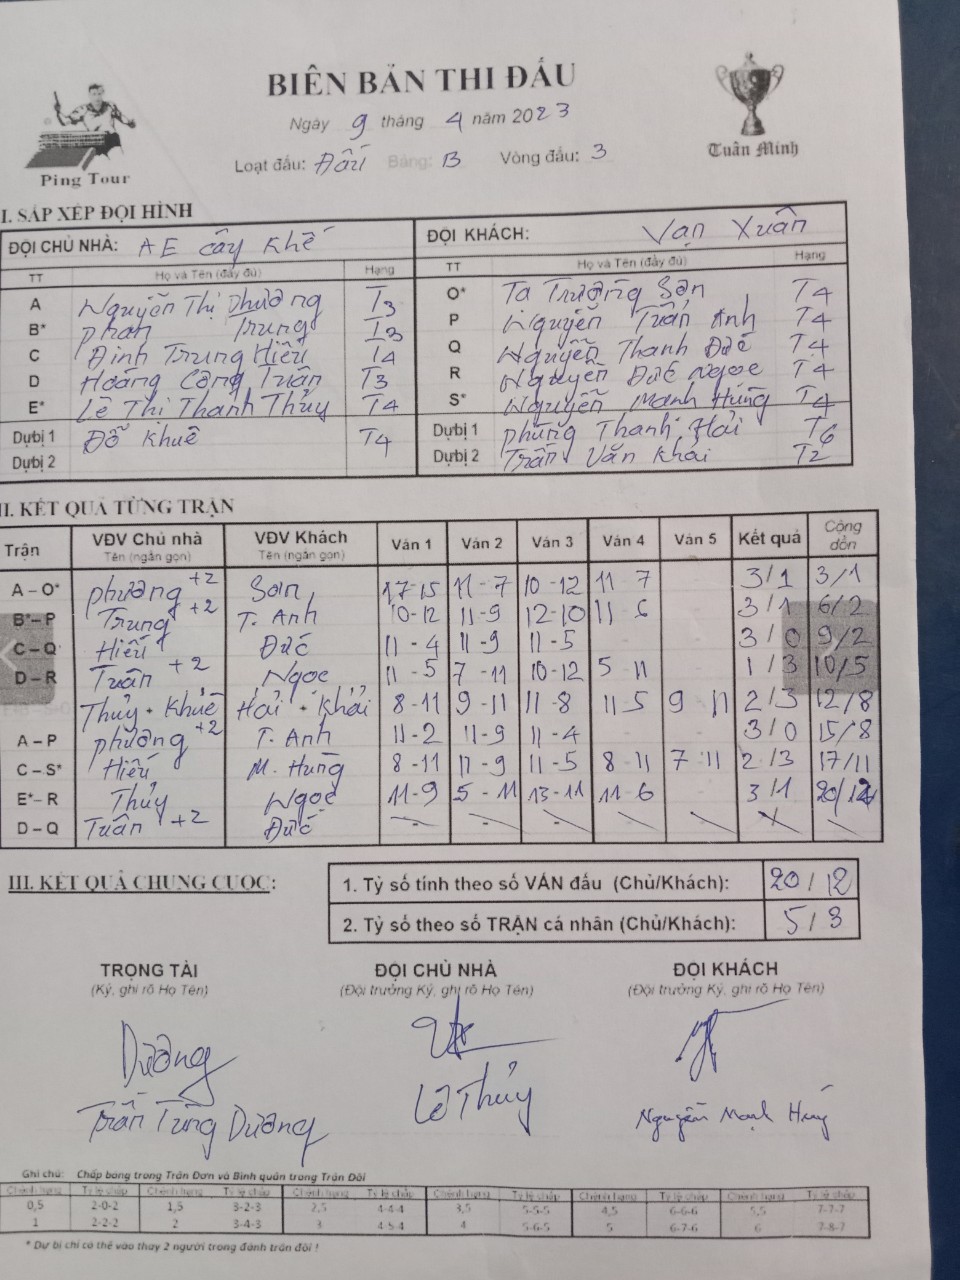 BIÊN BẢN THI ĐẤU
Ngày 9 tháng 4 năm 2023
Loạt đấu: Đấu Bảng: B Vòng đấu: 3
Ping Tour
Tuấn Minh
I. SẮP XẾP ĐỘI HÌNH
ĐỘI CHỦ NHÀ: AE Cây Khế ĐỘI KHÁCH: Vạn Xuân
TT Họ và Tên (đầy đủ) Hạng TT Họ và Tên (đầy đủ) Hạng
A Nguyễn Thị Phương T3 O* Tạ Trường Sơn T4
B* Phan Trung T3 P Nguyễn Tuấn Anh T4
C Đinh Trung Hiếu T4 Q Nguyễn Thanh Đức T4
D Hoàng Công Tuấn T3 R Nguyễn Đức Ngọc T4
E* Lê Thị Thanh Thủy T4 S* Nguyễn Mạnh Hùng T4
Dự bị 1 Đỗ Khuê T4 Dự bị 1 Phùng Thanh Hải T6
Dự bị 2 Dự bị 2 Trần Văn Khải T2
II. KẾT QUẢ TỪNG TRẬN
Trận VĐV Chủ nhà VĐV Khách Ván 1 Ván 2 Ván 3 Ván 4 Ván 5 Kết quả Cộng dồn
Tên (ngắn gọn) Tên (ngắn gọn)
A – O* Phương +2 Sơn 17-15 11-7 10-12 11 7 3/1 3/1
B* – P Trung +2 T. Anh 10-12 11-9 12-10 11 6 3/1 6/2
C – Q Hiếu Đức 11-4 11-9 11-5 3/0 9/2
D – R Tuấn +2 Ngọc 11-5 7-11 10-12 5-11 1/3 10/5
Thủy + Khuê Hải + Khải 8-11 9-11 11-8 11-5 9 11 2/3 12/8
A – P Phương +2 T. Anh 11-2 11-9 11-4 3/0 15/8
C – S* Hiếu M. Hùng 8-11 11-9 11-5 8-11 7-11 2/3 17/11
E* – R Thủy Ngọc 11-9 5-11 13-11 11-6 3/1 20/12
D – Q Tuấn +2 Đức
III. KẾT QUẢ CHUNG CUỘC:
1. Tỷ số tính theo số VÁN đấu (Chủ/Khách): 20/12
2. Tỷ số theo số TRẬN cá nhân (Chủ/Khách): 5/3
TRỌNG TÀI ĐỘI CHỦ NHÀ ĐỘI KHÁCH
(Ký, ghi rõ Họ Tên) (Đội trưởng Ký, ghi rõ Họ Tên) (Đội trưởng Ký, ghi rõ Họ Tên)
Dương
Trần Tùng Dương Lê Thủy Nguyễn Mạnh Hùng
Ghi chú: Chấp bóng trong Trận Đơn và Bình quân trong Trận Đôi
Chênh hạng Tỷ lệ chấp Chênh hạng Tỷ lệ chấp Chênh hạng Tỷ lệ chấp Chênh hạng Tỷ lệ chấp Chênh hạng Tỷ lệ chấp Chênh hạng Tỷ lệ chấp
0,5 2-0-2 1,5 3-2-3 2,5 4-4-4 3,5 5-5-5 4,5 6-6-6 5,5 7-7-7
1 2-2-2 2 3-4-3 3 4-5-4 4 5-6-5 5 6-7-6 6 7-8-7
* Dự bị chỉ có thể vào thay 2 người trong đánh trận đôi !